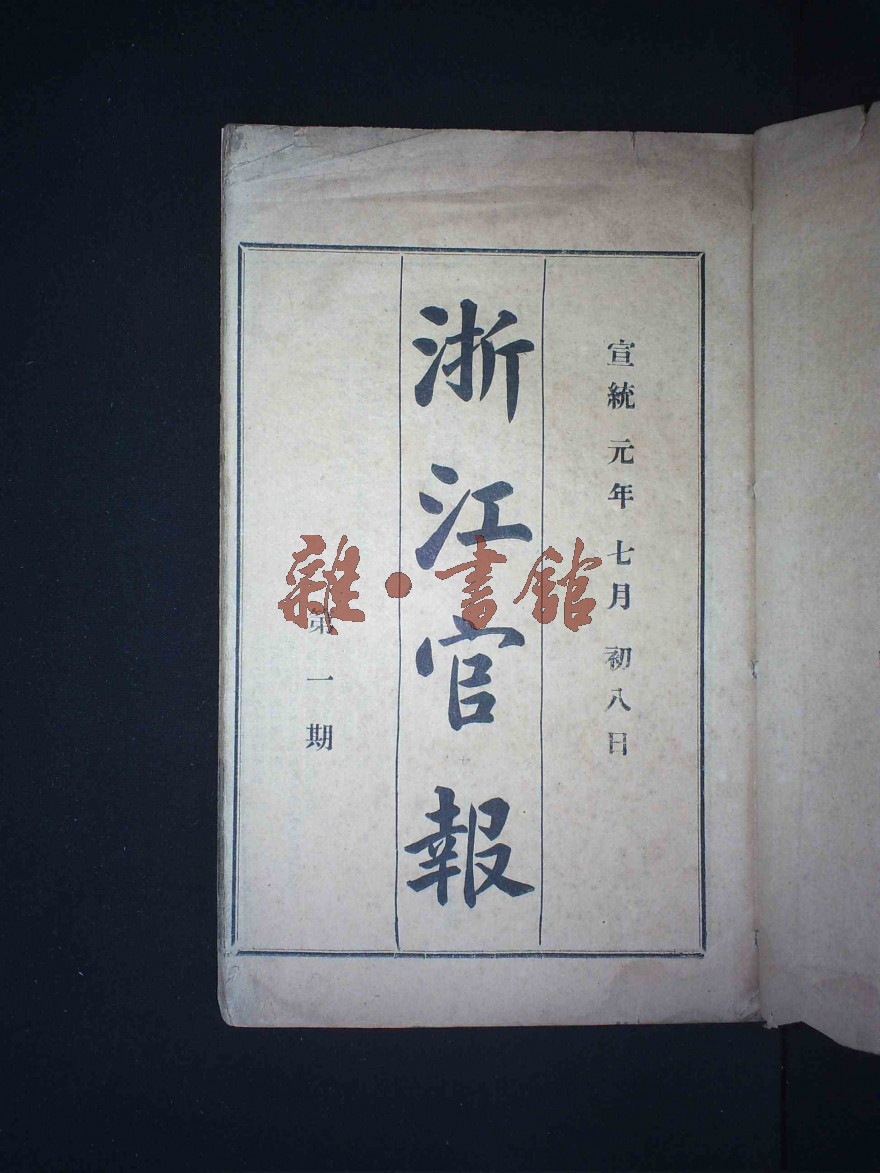 宣統元年七月初八日
浙江官報
第一期
雜·書館